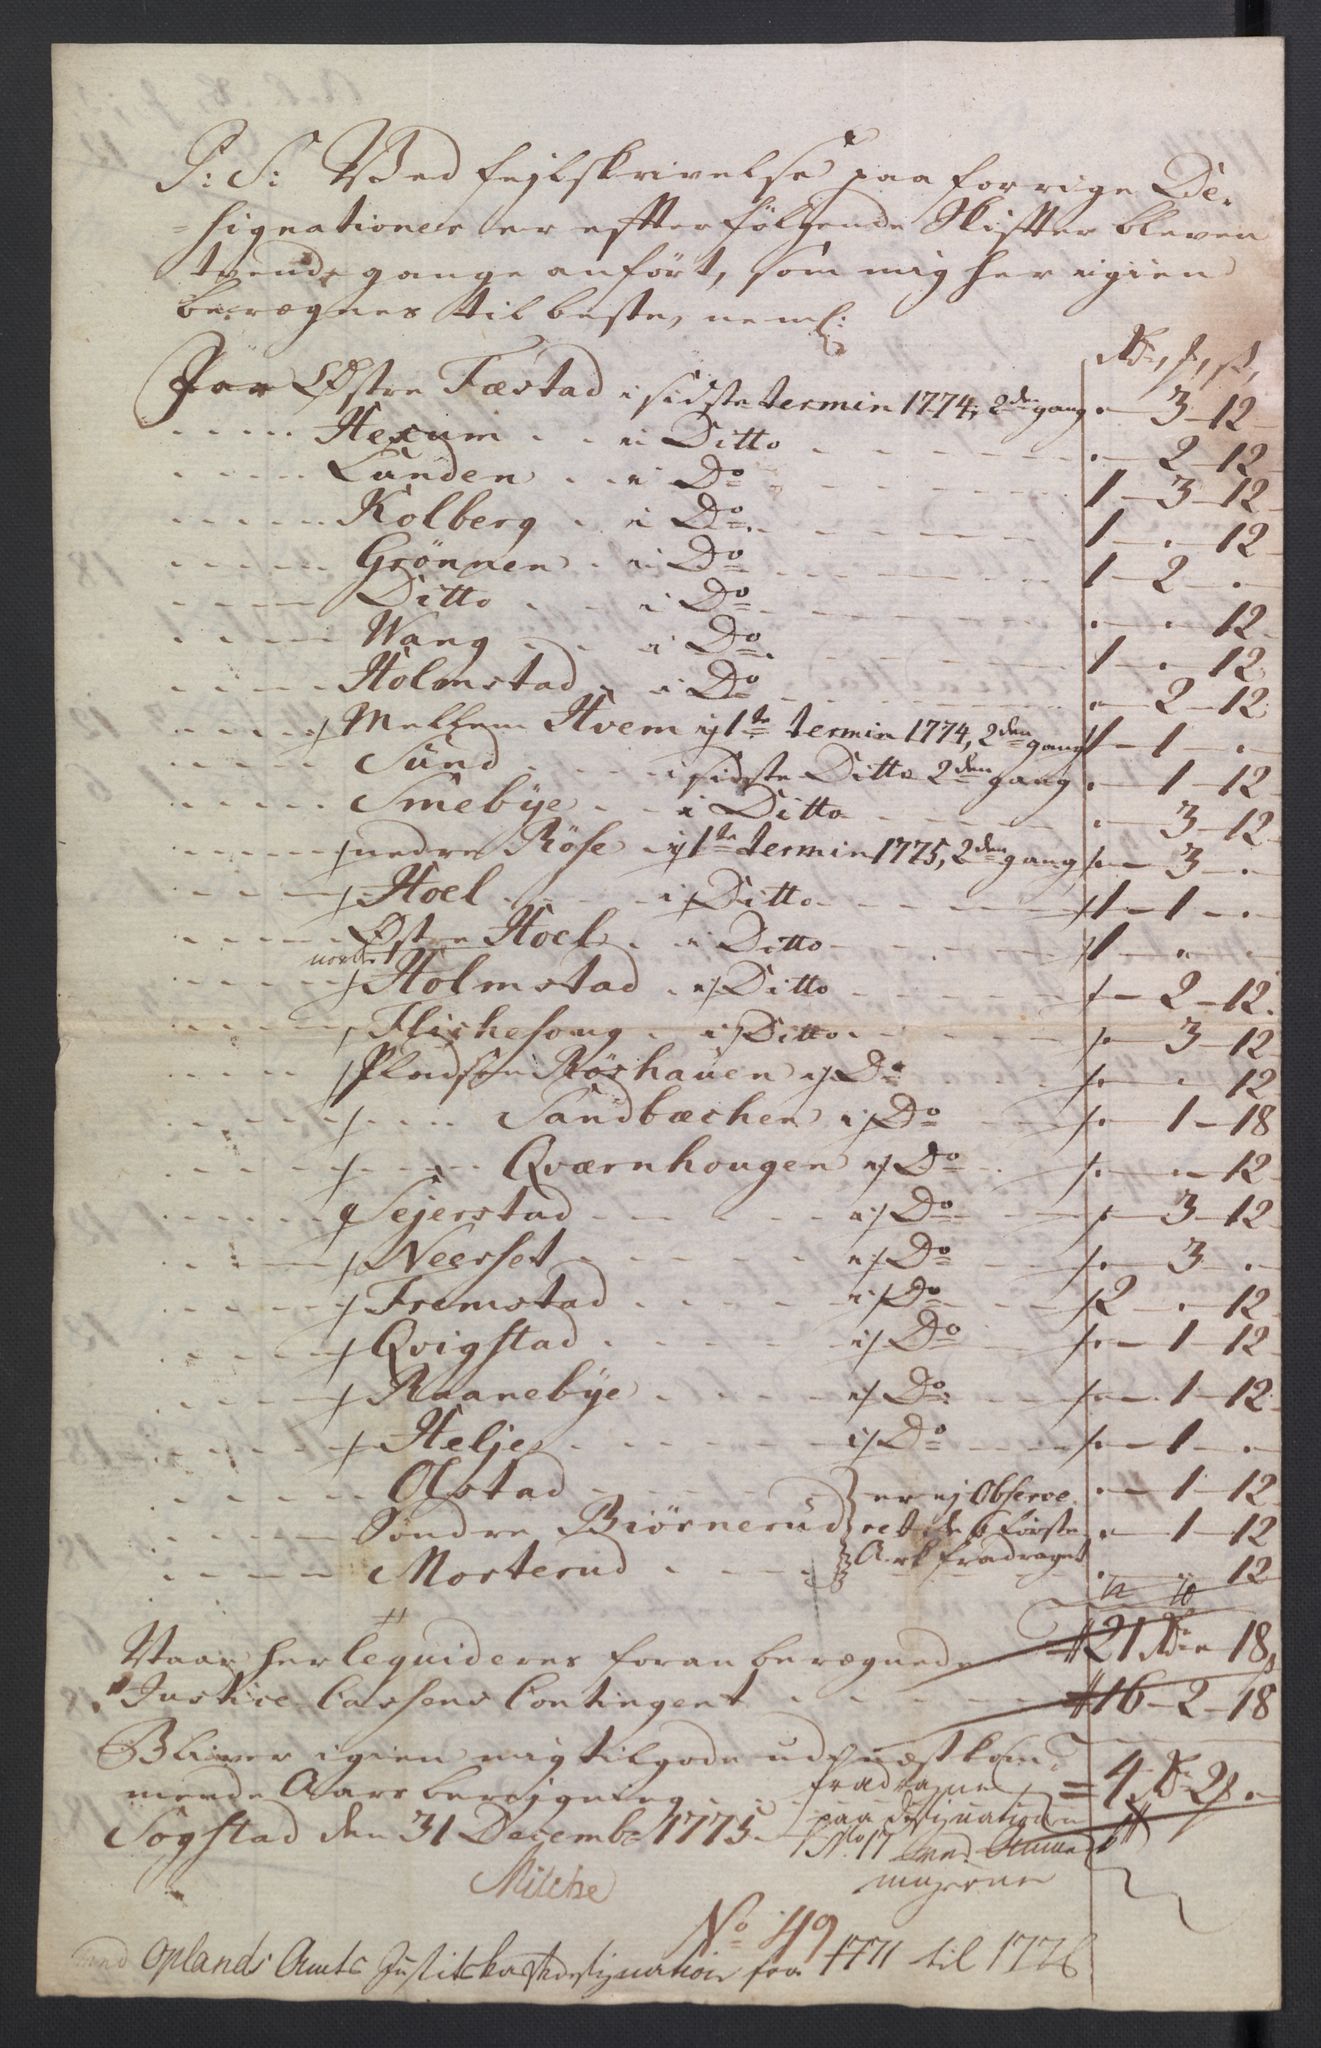 P: S: Ved fejlskrivelse paa forrige De-
=signationer er efterfölgende Skifter bleven
tvende gange anfört, som mig her igien
beregnes til beste, neml:
Rdr, ƒ, ß,
For Østre Fæstad i sidste termin 1774, 2den gang . - 3 - 12
Hexum . . i Ditto . - 2 - 12
Lunden . . i Do 1 - 3 - 12
Kolberg . i Do 1 - . 12
Grönnen . i Do 1 - 2 - .
Ditto . . . i Do . . 12
Wang . . . i Do 1 - . - 12
Holmstad . i Do . - 2 - 12
Mellem Hvem i 1te termin 1774, 2den gang 1 - 1 - .
Sund . . . i sidste Ditto 2den gang . - 1 - 12
Smebye . . i Ditto . 3 - 12
nedre Röse i 1te termin 1775, 2den gang . - 3 - .
Hoel . . . i Ditto 1 - 1 - .
Østre Hoel . i Ditto 1 . .
nordre
Holmstad . i Ditto - 2 - 12
Flishesong . i Ditto . - 3 - 12
Pladsen Röshauen i Do . . 12
Sandbæchen i Do . - 1 - 18
Qværnhougen i Do . . - 12
Sejerstad i Do . 3 - 12
Neerset i Do . - 3 .
Fremstad i Do 2 . - 12
Qvigstad i Do . - 1 - 12
Raanebye i Do . - 1 - 12
Helje i Do . - 1 - .
Olstad . - 1 - 12
er ej Observe
Söndre Biörnerud . - 1 - 12
ret de 6 förste
Morterud . 12
Ark fradraget
12 10
Naar her lequideres foran beregnede 21 Rdr " 18
Justice Cassens Contingent 16 - 2 - 18
Bliver igien mig tilgode udj næstkom-
mende Aars beregning = 4 Rdr 2ƒ .
fradragne
paa designationen
No 17 ved Anmed
ningerne
Sogstad den 31 Decembr 1775.
Milche
No 49
Oplands Amts Justitskasse designation fra 1771 til 1776